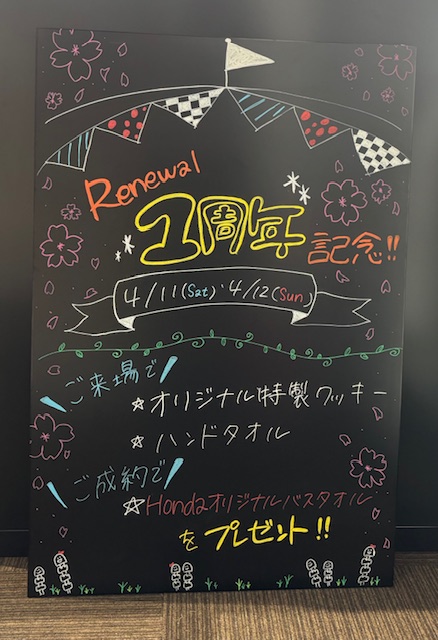 Renewal
1周年記念!!
4/11(Sat)・4/12(Sun)
ご来場で
☆オリジナル特製クッキー
☆ハンドタオル
ご成約で
☆Hondaオリジナルバスタオル
をプレゼント!!